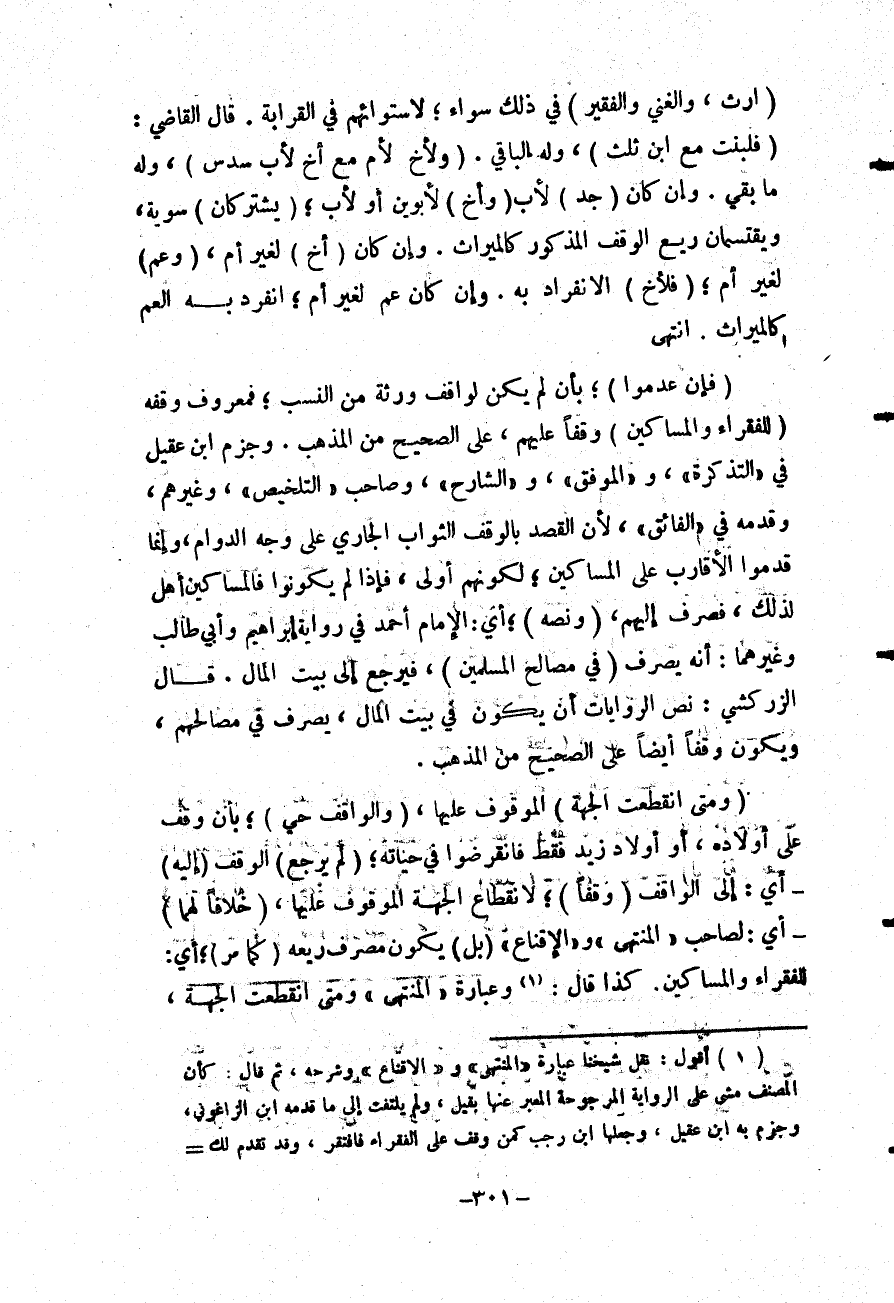 ( ارث ، والغني والفقير ) في ذلك سواء ؛ لاستوائهم في القرابة . قال القاضي :
( فلبنت مع ابن ثلث ) ، وله الباقي . ( ولأخ لأم مع أخ لأب سدس ) ، وله
ما بقي . وإن كان ( جد ) لأب ( وأخ ) لأبوين أو لأب ؛ ( يشتركان ) سوية ،
ويقتسمان ريع الوقف المذكور كالميراث . وإن كان ( أخ ) لغير أم ، ( وعم )
لغير أم ؛ ( فلأخ ) الانفراد به . وإن كان عم لغير أم ؛ انفرد بـــه العم
كالميراث . انتهى
( فإن عدموا ) ؛ بأن لم يكن لواقف ورثة من النسب ؛ فمعروف وقفه
( للفقراء والمساكين ) وقفاً عليهم ، على الصحيح من المذهب . وجزم ابن عقيل
في «التذكرة» ، و «الموفق» ، و «الشارح» ، وصاحب « التلخيص» ، وغيرهم ،
وقدمه في «الفائق» ، لأن القصد بالوقف الثواب الجاري على وجه الدوام ، وإنما
قدموا الأقارب على المساكين ؛ لكونهم أولى ، فإذا لم يكونوا فالمساكين أهل
لذلك ، فصرف إليهم ، ( ونصه ) ؛ أي : الإمام أحمد في رواية إبراهيم وأبي طالب
وغيرهما : أنه يصرف ( في مصالح المسلمين ) ، فيرجع إلى بيت المال . قـــال
الزركشي : نص الروايات أن يكون في بيت المال ، يصرف في مصالحهم ،
ويكون وقفاً أيضاً على الصحيح من المذهب .
( ومتى انقطعت الجهة ) الموقوف عليها ، ( والواقف حي ) ؛ بأن وقف
على أولاده ، أو أولاد زيد فقط فانقرضوا في حياته ؛ ( لم يرجع ) الوقف ( إليه )
ـ أي : إلى الواقف ( وقفاً ) ؛ لانقطاع الجهة الموقوف عليها ، ( خلافاً لهما )
ـ أي : لصاحب « المنتهى » و«الإقناع» ( بل ) يكون مصرف ريعه ( كما مر ) ؛ أي :
للفقراء والمساكين . كذا قال : (١) وعبارة « المنتهى » ومتى انقطعت الجهة ،
( ١ ) أقول : نقل شيخنا عبارة «المنتهى» و « الاقناع » وشرحه ، ثم قال : كأن
المصنف مشى على الرواية المرجوحة المعبر عنها بقيل ، ولم يلتفت إلى ما قدمه ابن الزاغوني ،
وجزم به ابن عقيل ، وجعلها ابن رجب كمن وقف على الفقراء فافتقر ، وقد تقدم لك =
ـ ٣٠١ ـ